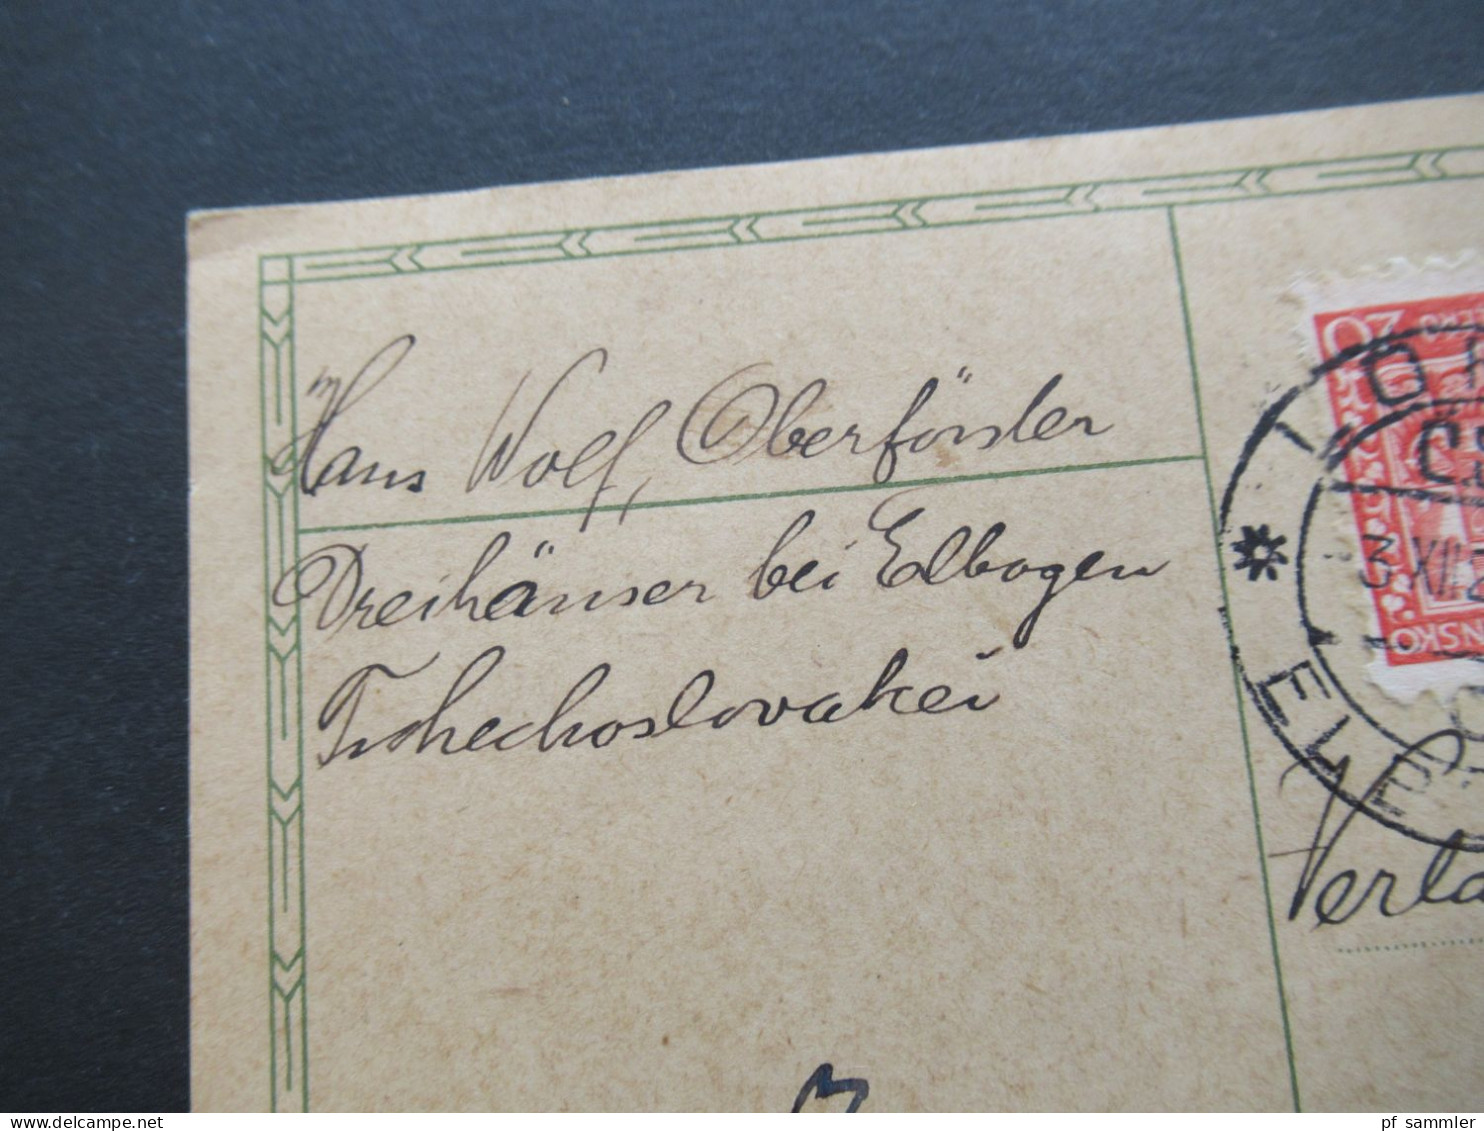 Hans Wolf, Oberförster
Dreihäuser bei Elbogen
Tschechoslovakei
20
3 XII 2
NSKO
LOKET
ELBO
Verla
pf sammler